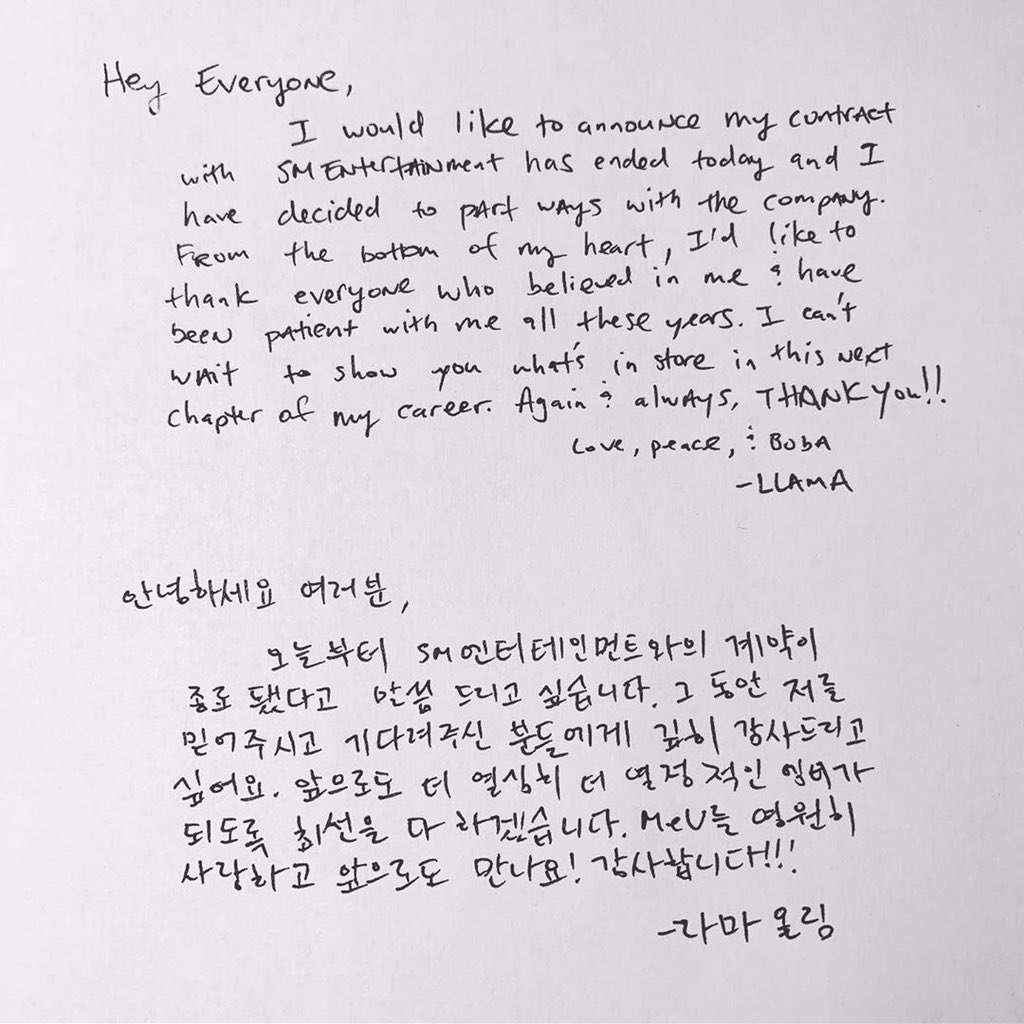 Hey Everyone,
I would like to announce my contract
with SM Entertainment has ended today and I
have decided to part ways with the company.
From the bottom of my heart, I'd like to
thank everyone who believed in me & have
been patient with me all these years. I can't
wait to show you what's in store in this next
chapter of my career. Again & always, THANK You!!
Love, peace, & Boba
-LLAMA
안녕하세요 여러분,
오늘부터 SM엔터테인먼트와의 계약이
종료 됐다고 말씀 드리고 싶습니다. 그 동안 저를
믿어주시고 기다려주신 분들에게 깊히 감사드리고
싶어요. 앞으로도 더 열심히 더 열정적인 엠버가
되도록 최선을 다 하겠습니다. MeU를 영원히
사랑하고 앞으로도 만나요! 감사합니다!!!
-라마 올림